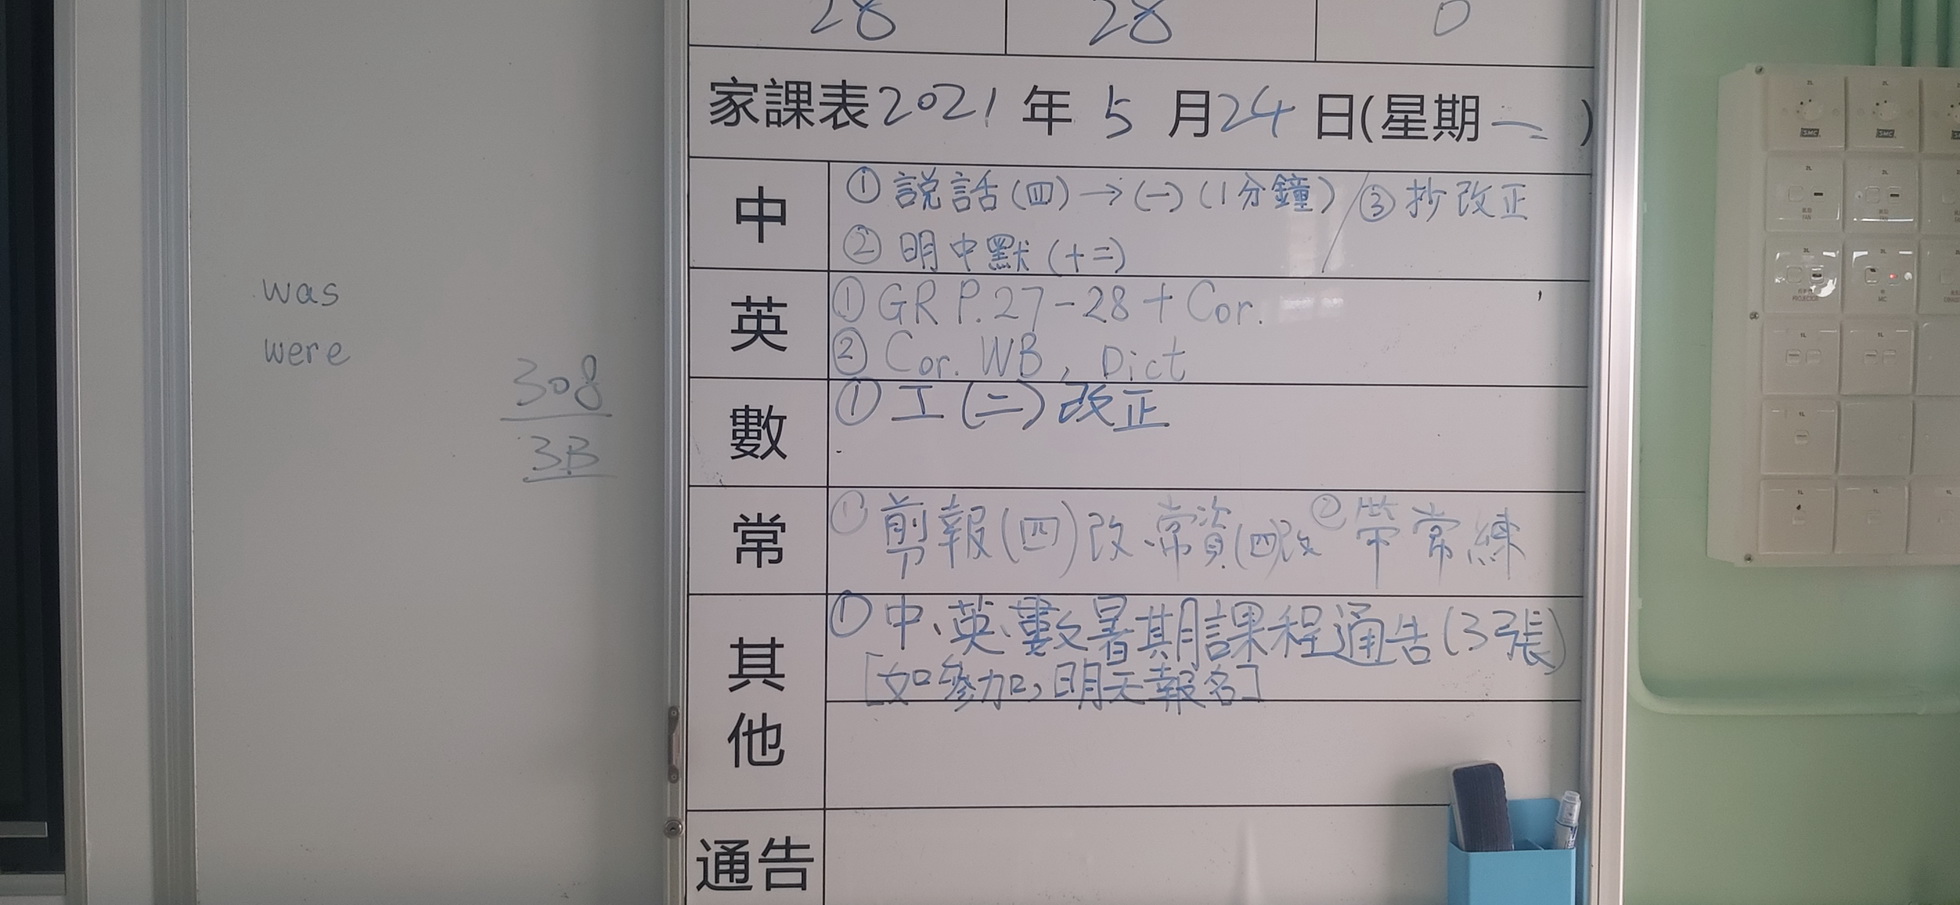 was
were
308
3B
28 28 0
家課表2021年5月24日(星期一)
中
①説話(四)→(一)(1分鐘)/③抄改正
②明中默(十二)
英
①GR P.27-28+Cor.
②Cor. WB, Dict
數
①工(二)改正
常
①剪報(四)改、常資(四)改 ②帶常練
其他
①中、英、數暑期課程通告(3張)
[如參加,明天報名]
通告